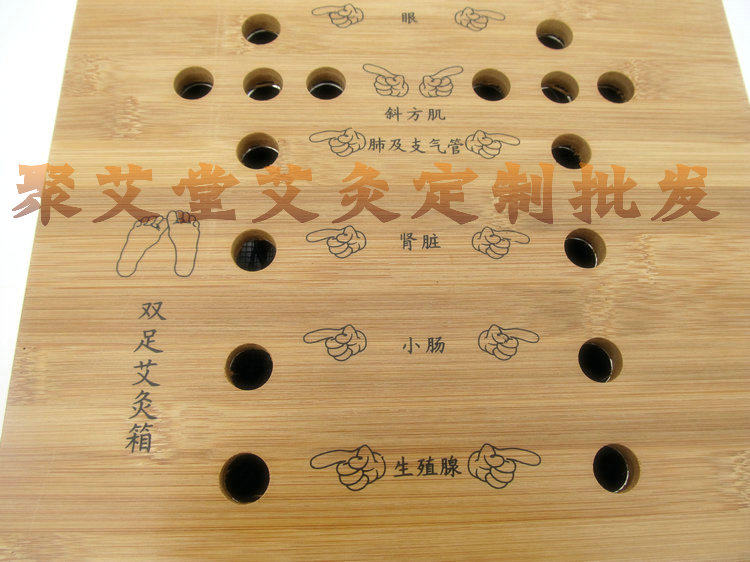 眼
斜方肌
肺及支气管
聚艾堂艾灸定制批发
肾脏
双足艾灸箱
小肠
生殖腺